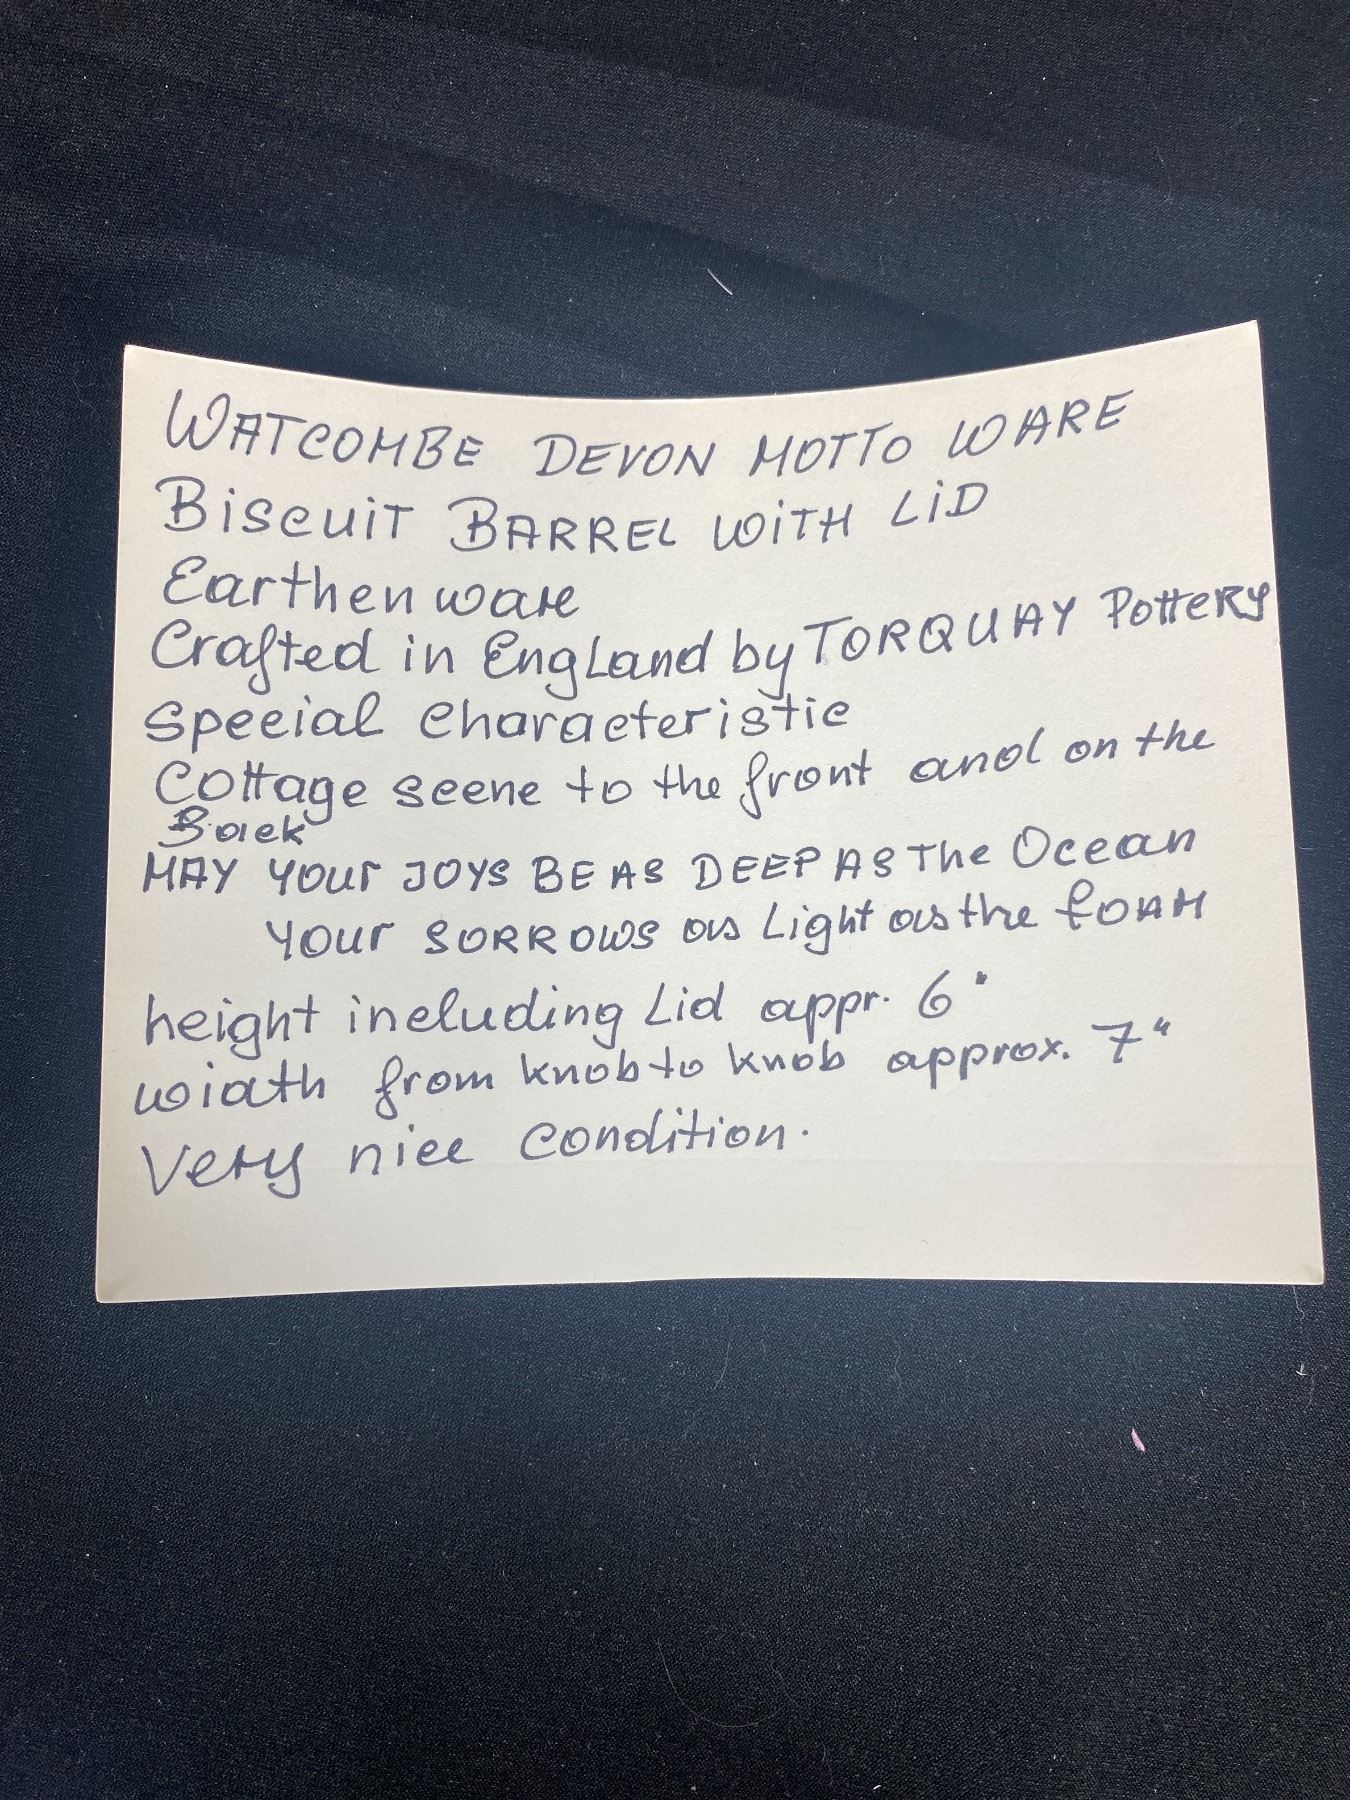 WATCOMBE DEVON MOTTO WARE
BiscuiT BARREL WiTH LiD
Earthen ware
Crafted in England by TORQUAY PotteRY
Special characteristic
Cottage scene to the front and on the
Back
MAY YOur JOYS BE AS DEEP AS The Ocean
YOur SORROWS as Light as the fOAM
height including Lid appr. 6"
width from knob to knob approx. 7"
Very nice condition.